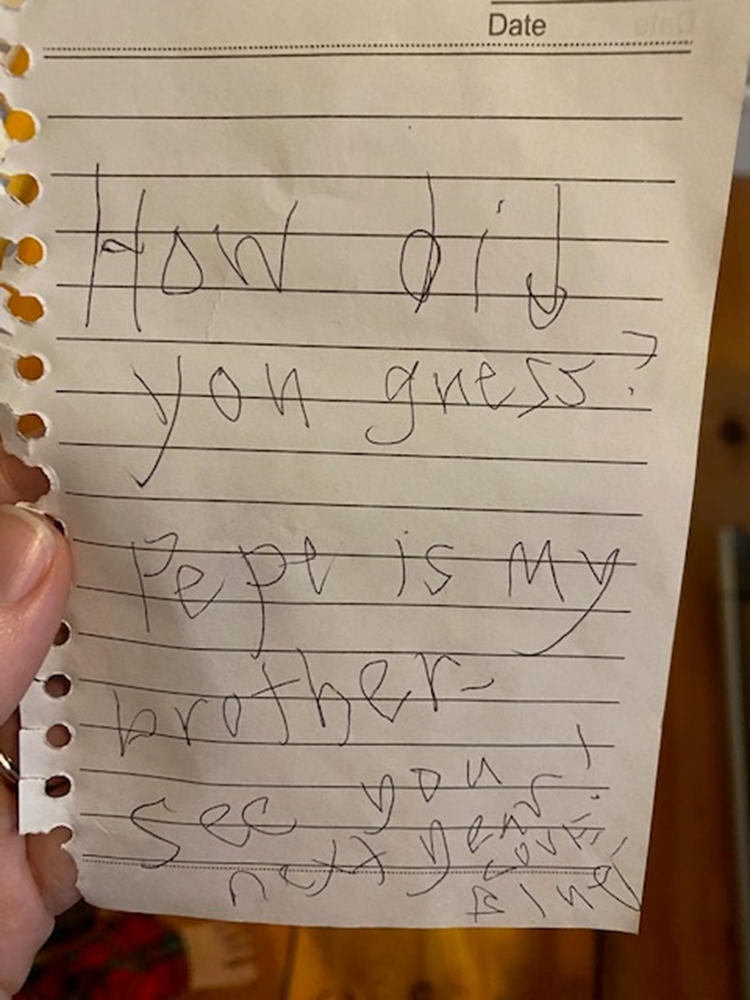 Date
How did
you guess?
Pepe is my
brother-
see you
next year!